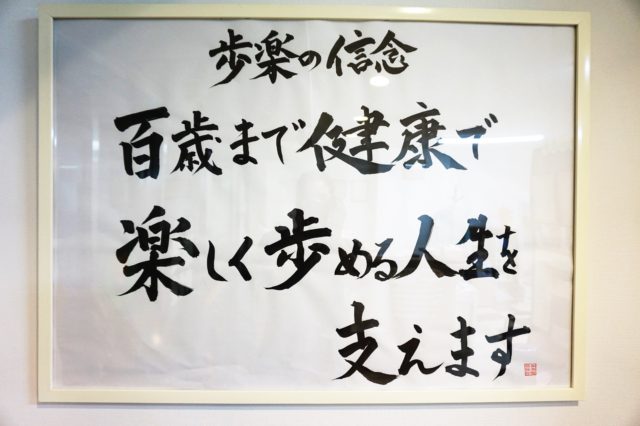 歩楽の信念
百歳まで健康で
楽しく歩める人生を
支えます